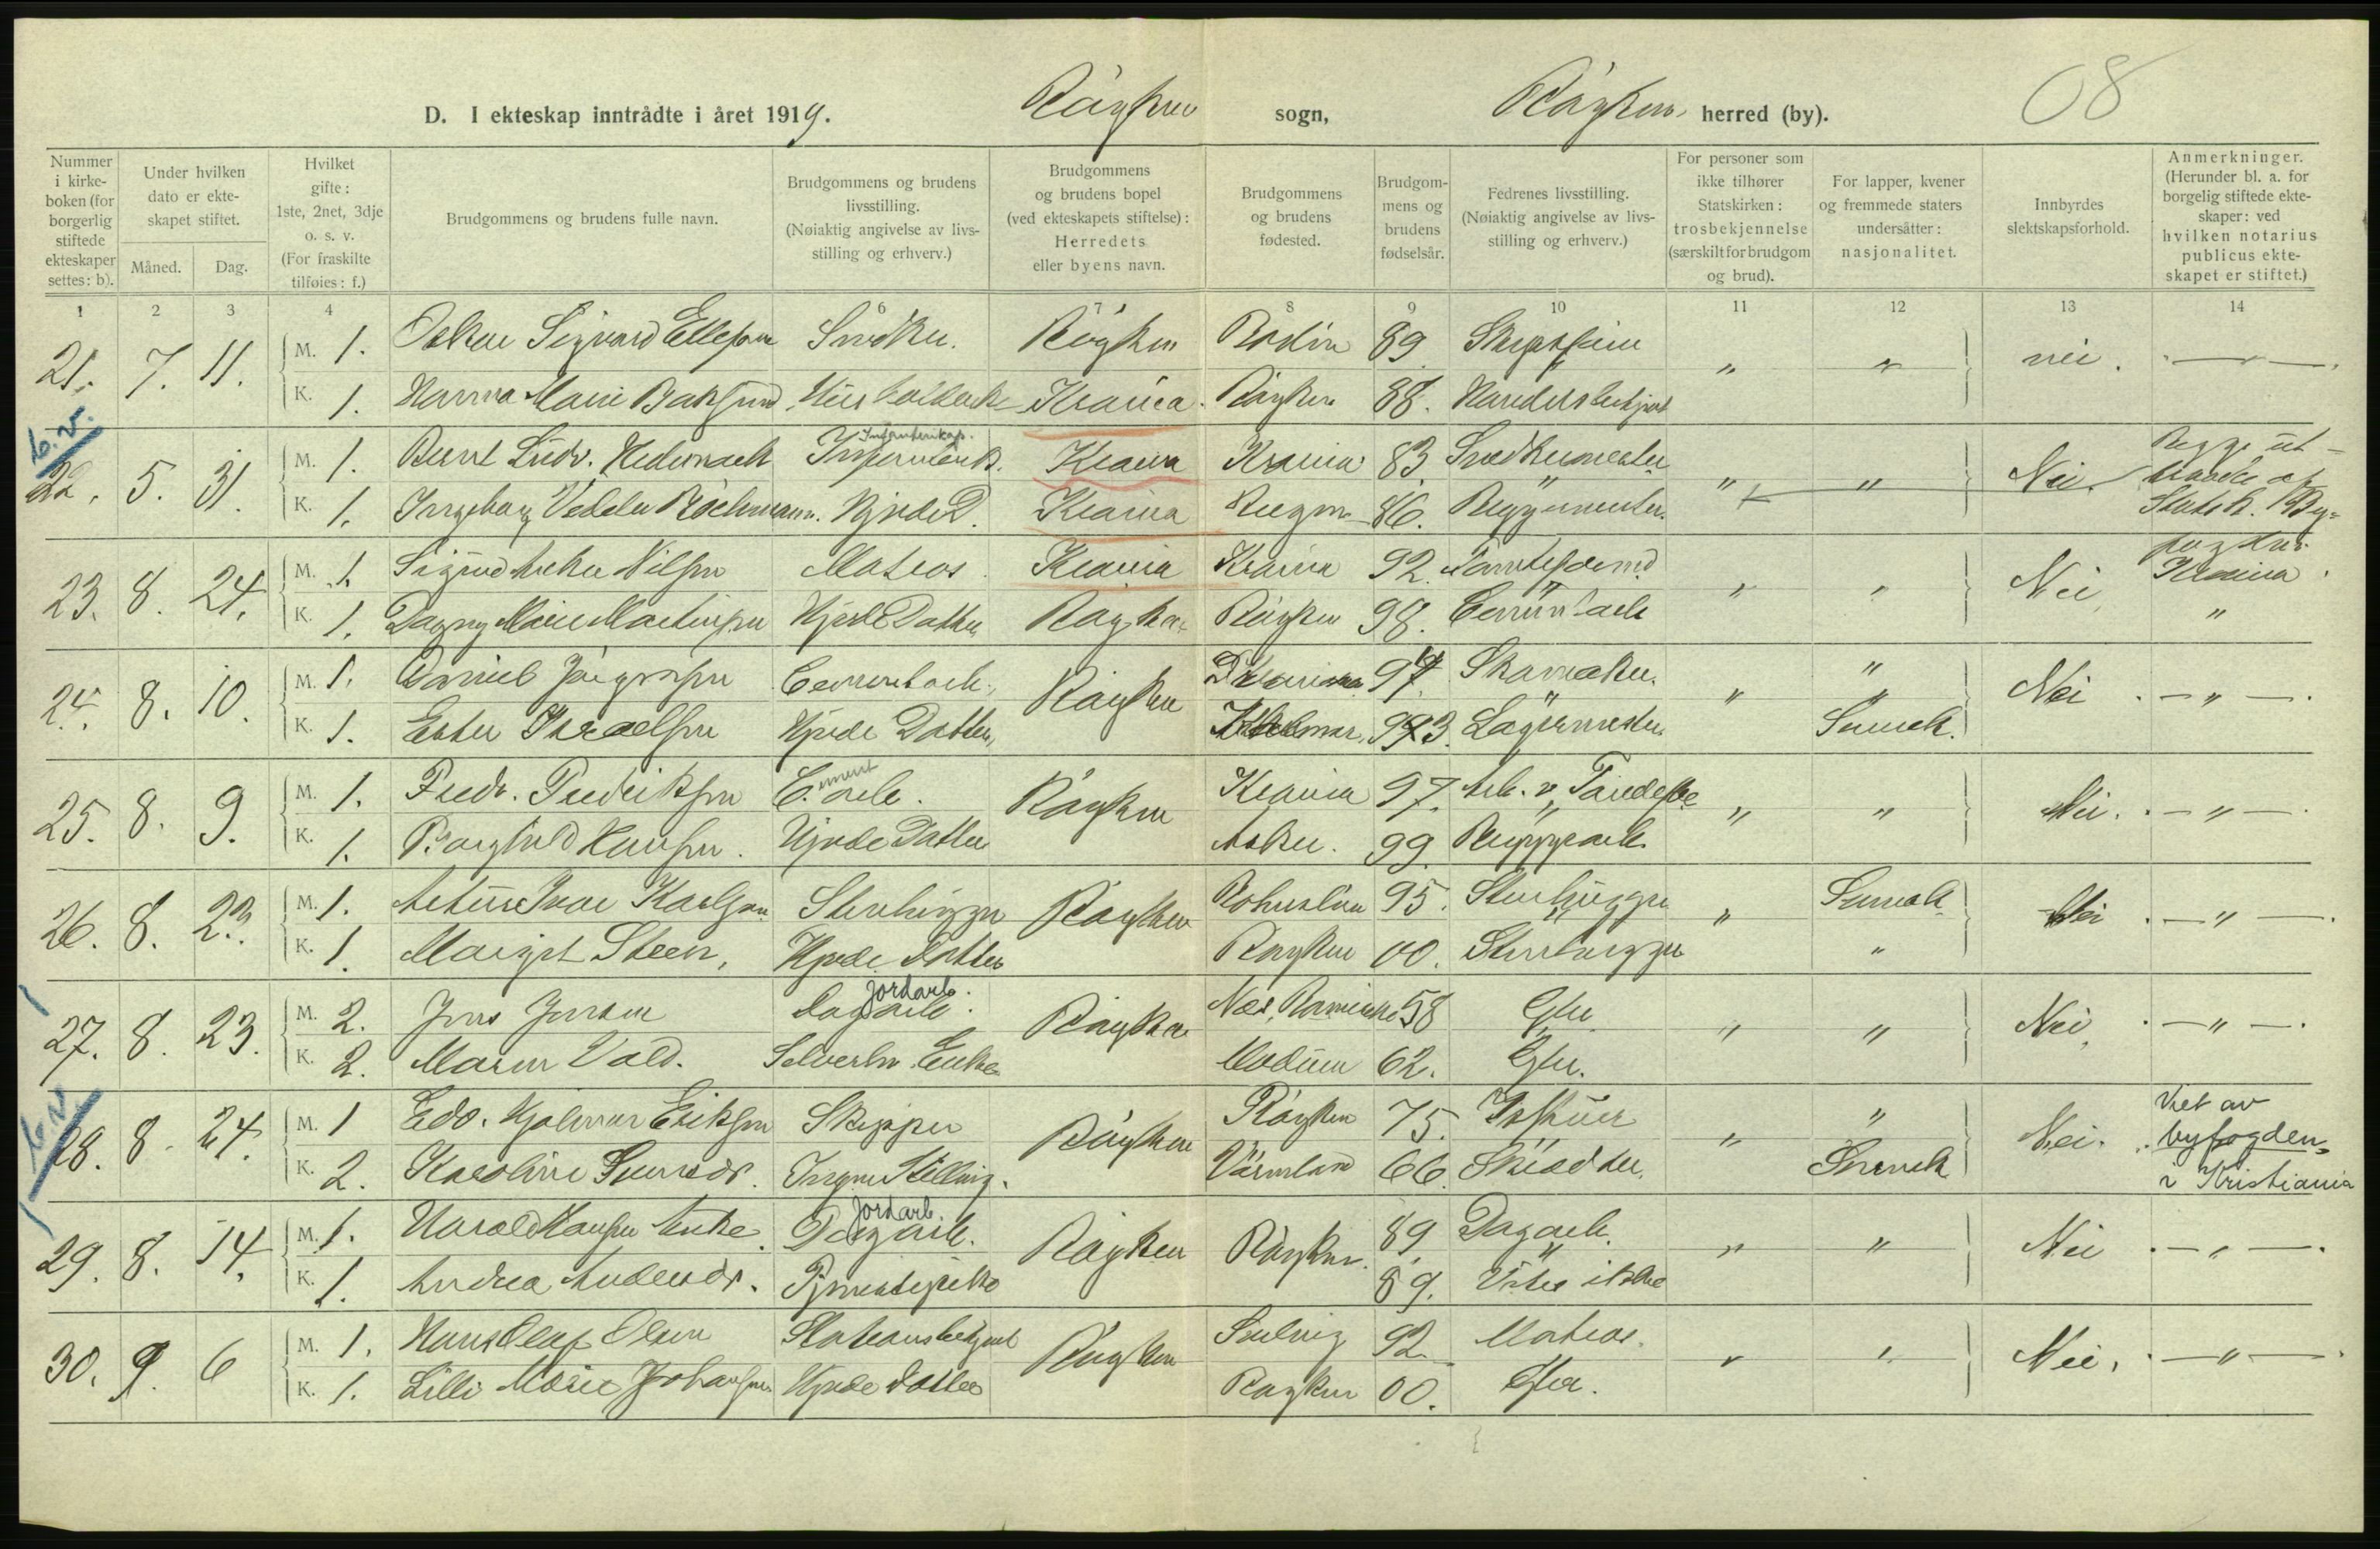 08
D. I ekteskap inntrådte i året 1919. Røyken sogn, Røyken herred (by).
Nummer i kirkeboken (for borgerlig stiftede ekteskaper settes: b).
Under hvilken dato er ekteskapet stiftet.
Måned. Dag.
Hvilket gifte: 1ste, 2net, 3dje o. s. v. (For fraskilte tilføies: f.)
Brudgommens og brudens fulle navn.
Brudgommens og brudens livsstilling. (Nøiaktig angivelse av livsstilling og erhverv.)
Brudgommens og brudens bopel (ved ekteskapets stiftelse): Herredets eller byens navn.
Brudgommens og brudens fødested.
Brudgommens og brudens fødselsår.
Fedrenes livsstilling. (Nøiaktig angivelse av livsstilling og erhverv.)
For personer som ikke tilhører Statskirken: trosbekjennelse (særskilt for brudgom og brud).
For lapper, kvener og fremmede staters undersåtter: nasjonalitet.
Innbyrdes slektskapsforhold.
Anmerkninger. (Herunder bl. a. for borgelig stiftede ekteskaper: ved hvilken notarius publicus ekteskapet er stiftet.)
1 2 3 4 6 7 8 9 10 11 12 13 14
21. 7. 11. M. 1. Oskar Sigvard Ellefsen Snedker. Røyken Bodin 89 " " nei.
K. 1. Hanna Marie Krania. Røyken 88. Handelsbetjent
b.v.
22. 5. 31. M. 1. Bernt Ludv. Krania Krania 83. Snedkermester " " Nei. Begge ut-
K. 1. Ingeborg Hj.v.D. Krania Bergen 86. Byggmester. Statsk. By-
fogden
23. 8. 24. M. 1. Sigurd Anker Nilsen Matros Krania Krania 92. " " Nei Krania.
K. 1. Dagny Marie Martinsen Hjv. Datter Røyken Røyken 98. Cementarb "
24. 8. 10. M. 1. Daniel Jørgensen Cementarb. Røyken 97. Skomaker. " " Nei - " -
K. 1. Ester Israelsen Hjv. Datter, 93. Lagermester. Svensk.
25. 8. 9. M. 1. Fredr. Fredriksen C.ment arb. Røyken Krania 97. Arb. v. " " Nei. - " -
K. 1. Borghild Hansen. Hjv. Datter Asker. 99. Bryggearb.
26. 8. 23. M. 1. Artur Ivar Karlsen Stenhugger Røyken Bohuslen 95. Stenhugger " Svensk Nei - " -
K. 1. Margit Steen, Hjv. Datter Røyken 00. Stenhugger "
27. 8. 23. M. 2. Jens Jensen Jordarb. Dagarb. Røyken Nes, Romerike 58 Gbr. " " Nei, - " -
K. 2. Maren Vold. Selverhv. Enke Modum 62. Gbr.
b.v.
28. 8. 24. M. 1 Edv. Hjalmar Eriksen Skipper Røyken Røyken 75. " " Nei. Viet av
K. 2. Karoline Svensdr. Ingen Stilling. Värmland 66. Skredder. Svensk byfogden
i Kristiania
29. 8. 14. M. 1. Harald Hansen Jordarb. Dagarb. Røyken Røyken. 89 Dagarb. " " Nei - " -
K. 1. Andrea Andersdr. Tjenestepike 89. Vites ikke
30. 9. 6 M. 1. Hans Olaf Olsen Stationsbetjent Røyken Solvig 92. Matros. " " Nei. - " -
K. 1. Lilli Marie Johansen Hjv. Datter Røyken 00. Gbr.